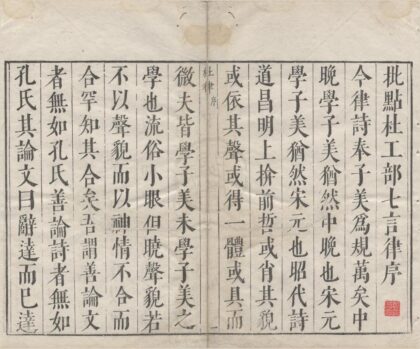 批點杜工部七言律序
今律詩奉子美爲規萬矣中
晚學子美猶然中晚也宋元
學子美猶然宋元也昭代詩
道昌明上揜前哲或肖其貌
或依其聲或得一體或具而
杜律 序
微夫皆學子美未學子美之
學也流俗小眼但曉聲貌若
不以聲貌而以神情不合而
合罕知其合矣吾謂善論文
者無如孔氏善論詩者無如
孔氏其論文曰辭達而已達